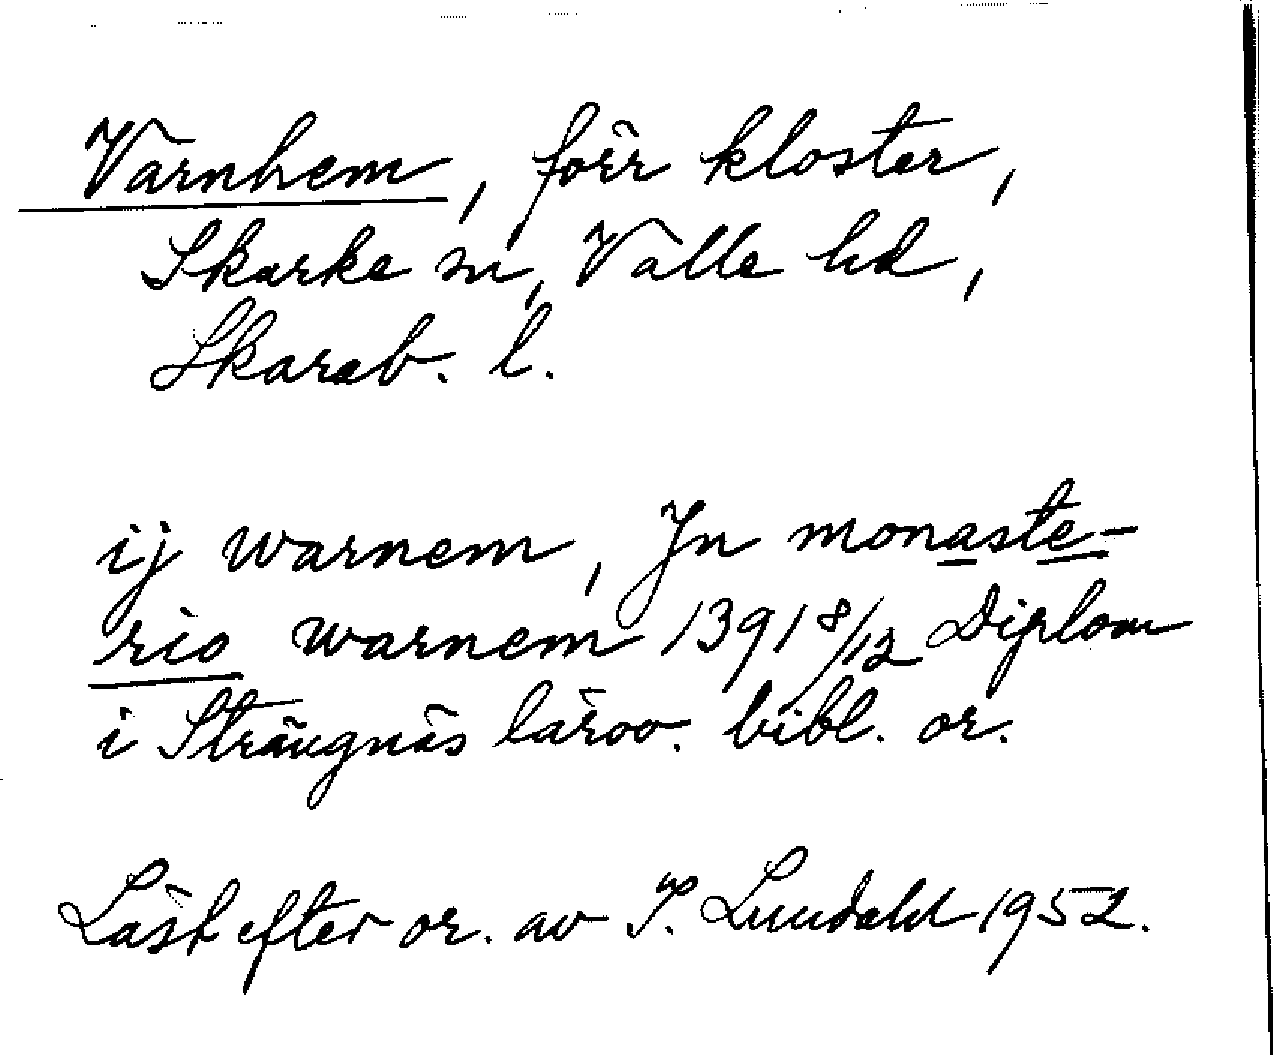 Varnhem, förr kloster,
Skarke sn, Valle hd,
Skarab. l.
ij warnem, Jn monaste-
rio warnem 1391 8/12 Diplom
i Strängnäs lärov. bibl. or.
Läst efter or. av I. Lundahl 1952.